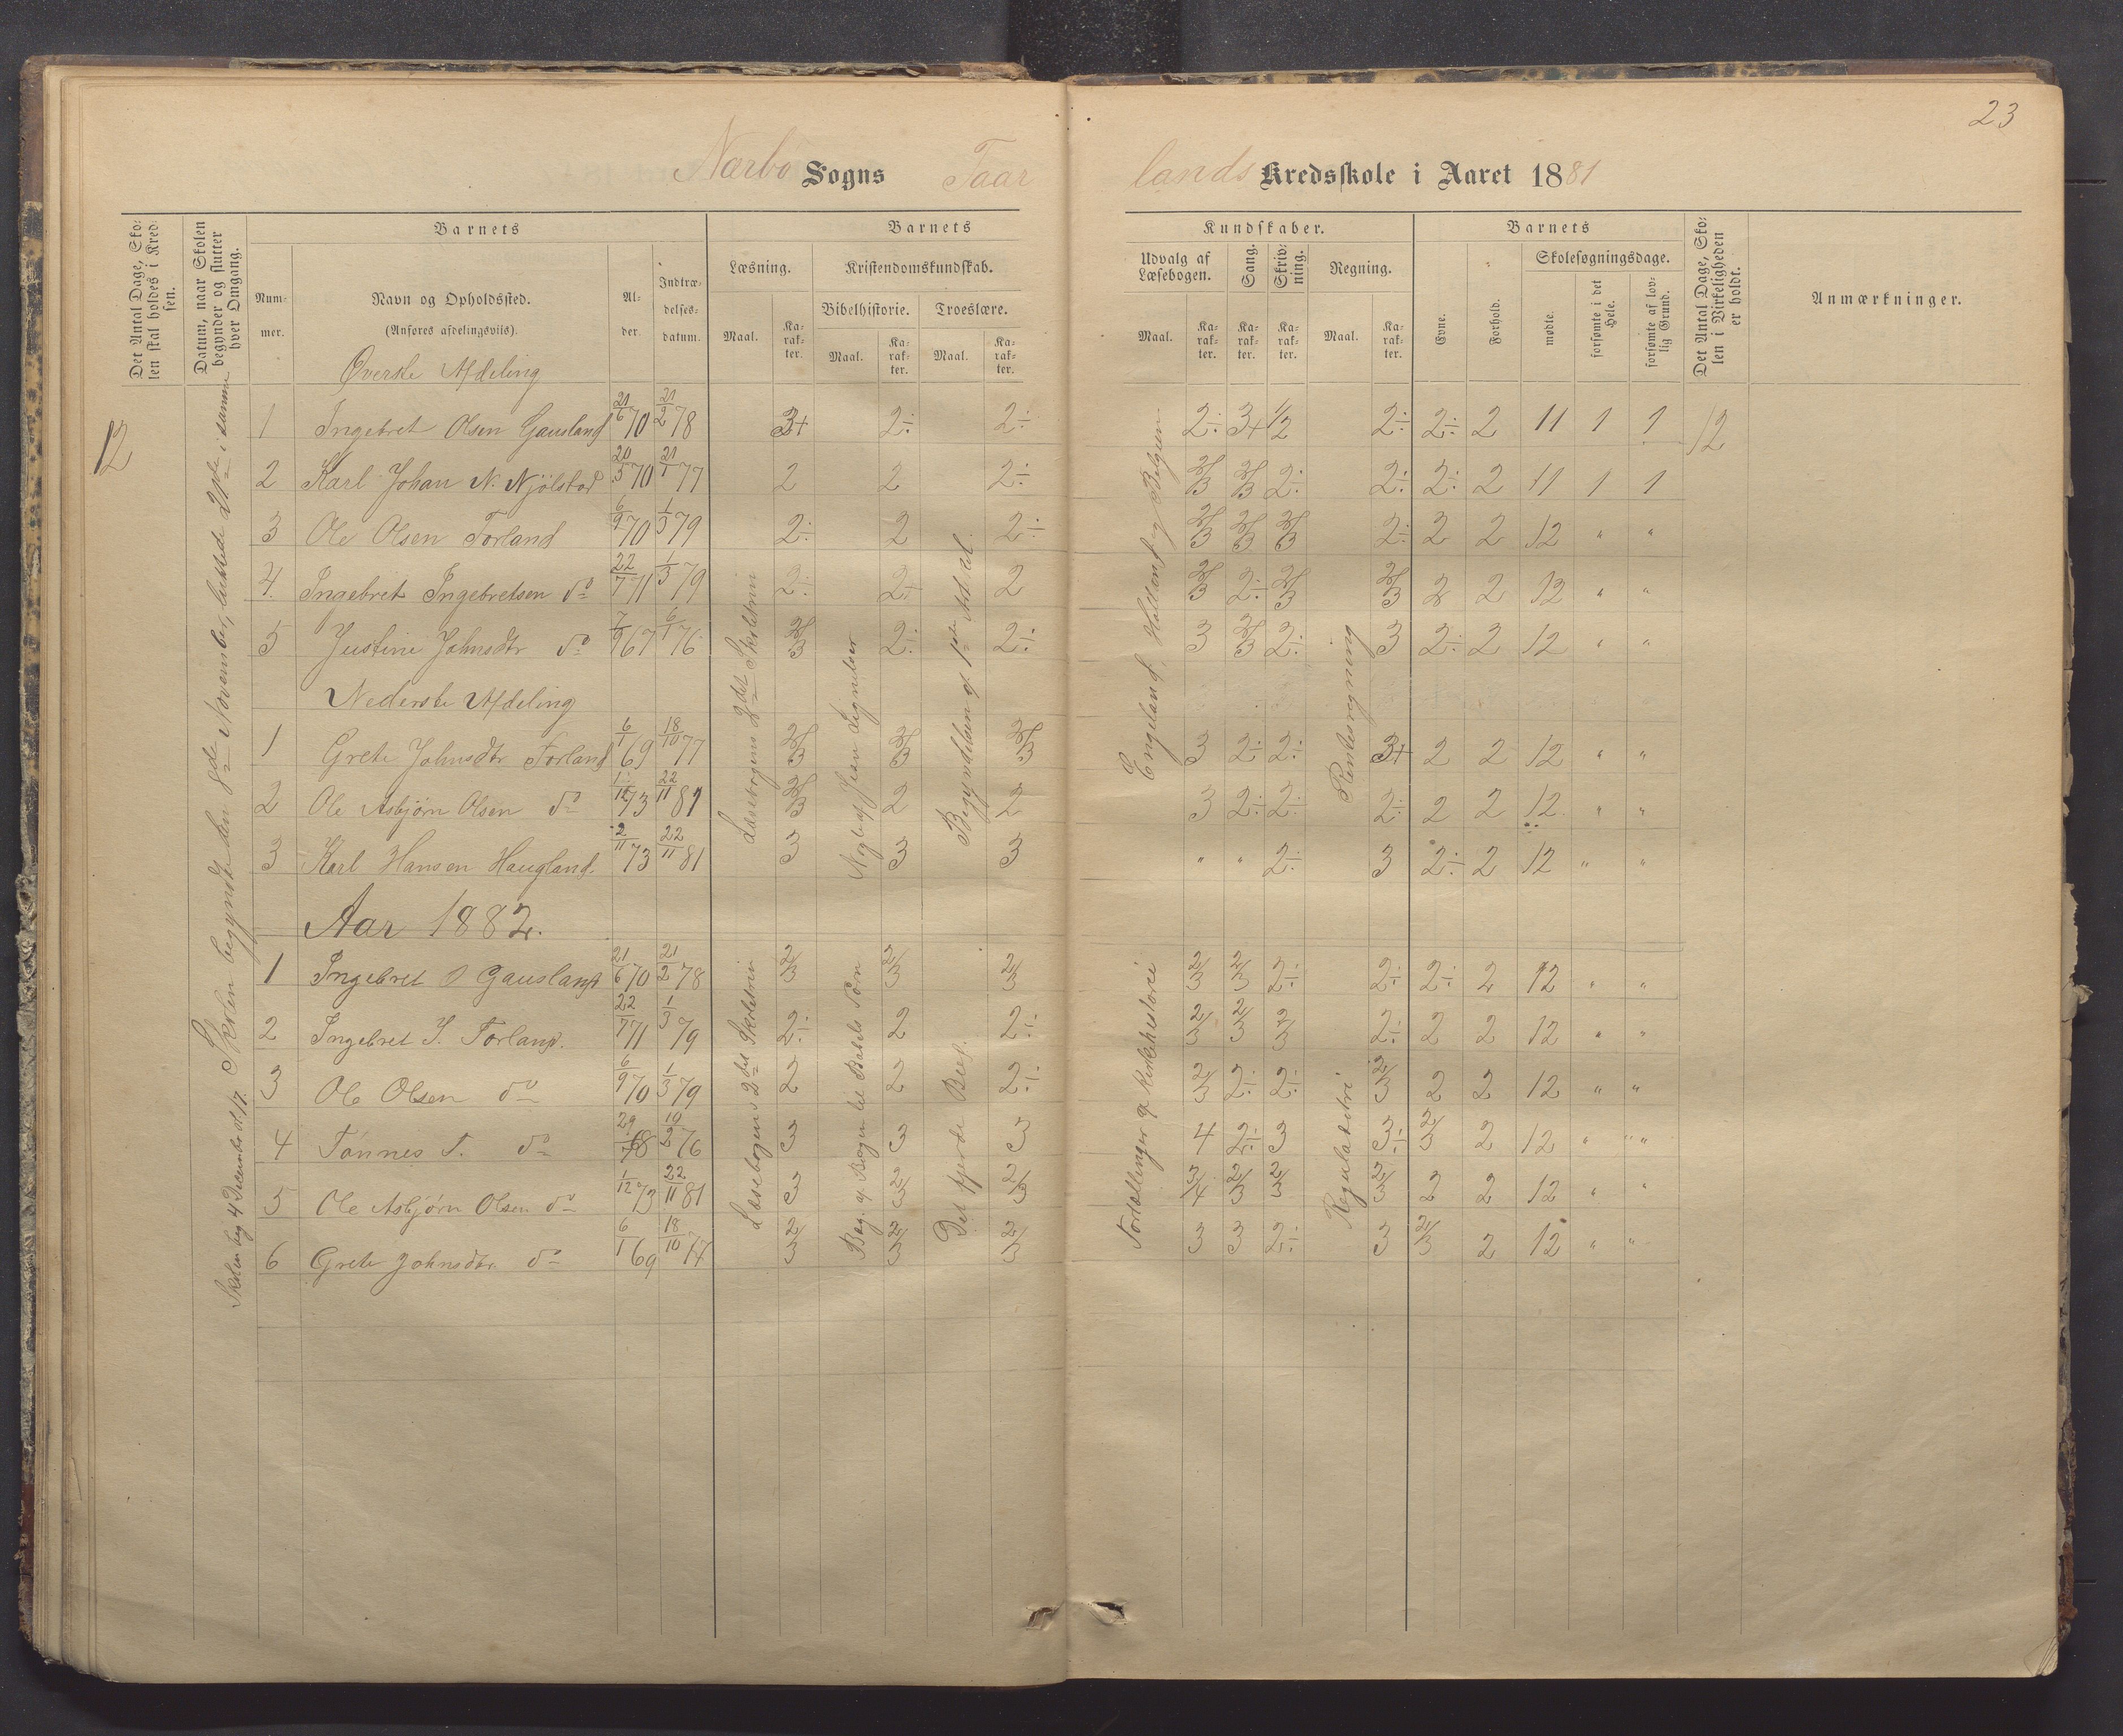 23
Nærbø Sogns Taarlands Kredsskole i Aaret 1881
Det Antal Dage, Skolen skal holdes i Kredsen.
Datum, naar Skolen begynder og slutter hver Omgang.
Barnets
Nummer.
Navn og Opholdssted.
(Anføres afdelingsviis).
Alder.
Indtrædelsesdatum.
Barnets Kundskaber.
Læsning.
Maal. Karakter.
Kristendomskundskab.
Bibelhistorie. Troeslære.
Maal. Karakter. Maal. Karakter.
Udvalg af Læsebogen.
Maal. Karakter.
Sang. Karakter.
Skrivning. Karakter.
Regning.
Maal. Karakter.
Barnets
Evne. Forhold.
Skolesøgningsdage.
mødte. forsømte i det Hele. forsømte af lovlig Grund.
Det Antal Dage, Skolen i Virkeligheden er holdt.
Anmærkninger.
12
Skolen begyndte den 8de November, sluttede 21de i samme
Øverste Afdeling
1 Ingebret Olsen Gausland 21/6 70 21/2 78 3+ 2÷ 2÷ 2÷ 3+ 1/2 2÷ 2÷ 2 11 1 1 12
2 Karl Johan N. Njølstad 20/5 70 21/1 77 2 2 2÷ 2/3 2/3 2÷ 2÷ 2÷ 2 11 1 1
3 Ole Olsen Torland 6/9 70 1/3 79 2÷ 2 2÷ 2/3 2/3 2/3 2÷ 2 2 12 " "
4. Ingebret Ingebretsen do 22/7 71 1/3 79 2÷ 2÷ 2 2/3 2÷ 2/3 2/3 2 2 12 " "
5 Justine Johnsdtr do 7/9 67 6/1 76 2/3 2÷ 2÷ 3 2/3 2÷ 3 2÷ 2 12 " "
Nederste Afdeling
1 Grete Johnsdtr Torland 6/1 69 18/10 77 2/3 2/3 2/3 3 2÷ 2÷ 3+ 2 2 12 " "
2 Ole Asbjørn Olsen do 1/12 73 22/11 81 2/3 2 2 3 2÷ 2÷ 2÷ 2 2 12 " "
3 Karl Hansen Haugland. 2/11 73 22/11 81 3 3 3 " " 2÷ 3 2÷ 2 12 " "
Læsebogens 2det Skoletrin
Nogle af Jesu Lignelser
Begyndelsen af 1ste Artikel.
Engeland, Holland og Belgien
Rentesregning
Aar 1882.
Skolen beg 4 December sl. 17.
1 Ingebret O Gausland 21/6 70 21/2 78 2/3 2/3 2/3 2/3 2/3 2÷ 2÷ 2÷ 2 12 " "
2 Ingebret I. Torland. 22/7 71 1/3 79 2÷ 2 2÷ 2/3 2/3 2/3 2÷ 2 2 12 " "
3 Ole Olsen do 6/9 70 1/3 79 2 2 2÷ 2/3 2÷ 2÷ 2/3 2 2 12 " "
4 Tønnes T. do 29/ 68 19/2 76 3 3 3 4 2÷ 3 3÷ 2/3 2 12 " "
5 Ole Asbjørn Olsen do 1/12 73 22/11 81 3 2/3 2/3 3/4 2/3 2/3 2/3 2 2 12 " "
6 Grete Johnsdtr do 6/1 69 18/10 77 2/3 2/3 2/3 3 3 2÷ 3 2/3 2 12 " "
Læsebogens 2det Skoletrin
Beg. af Bogen til Babels Taarn
Det fjerde Bud.
Fortællinger af Kirkehistorie
Regula de tri